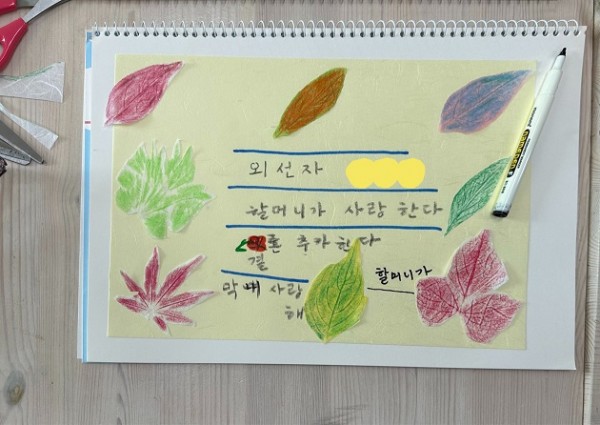 외선자
할머니가 사랑 한다
론 추카 한다
결
막내 사랑
해
할머니가